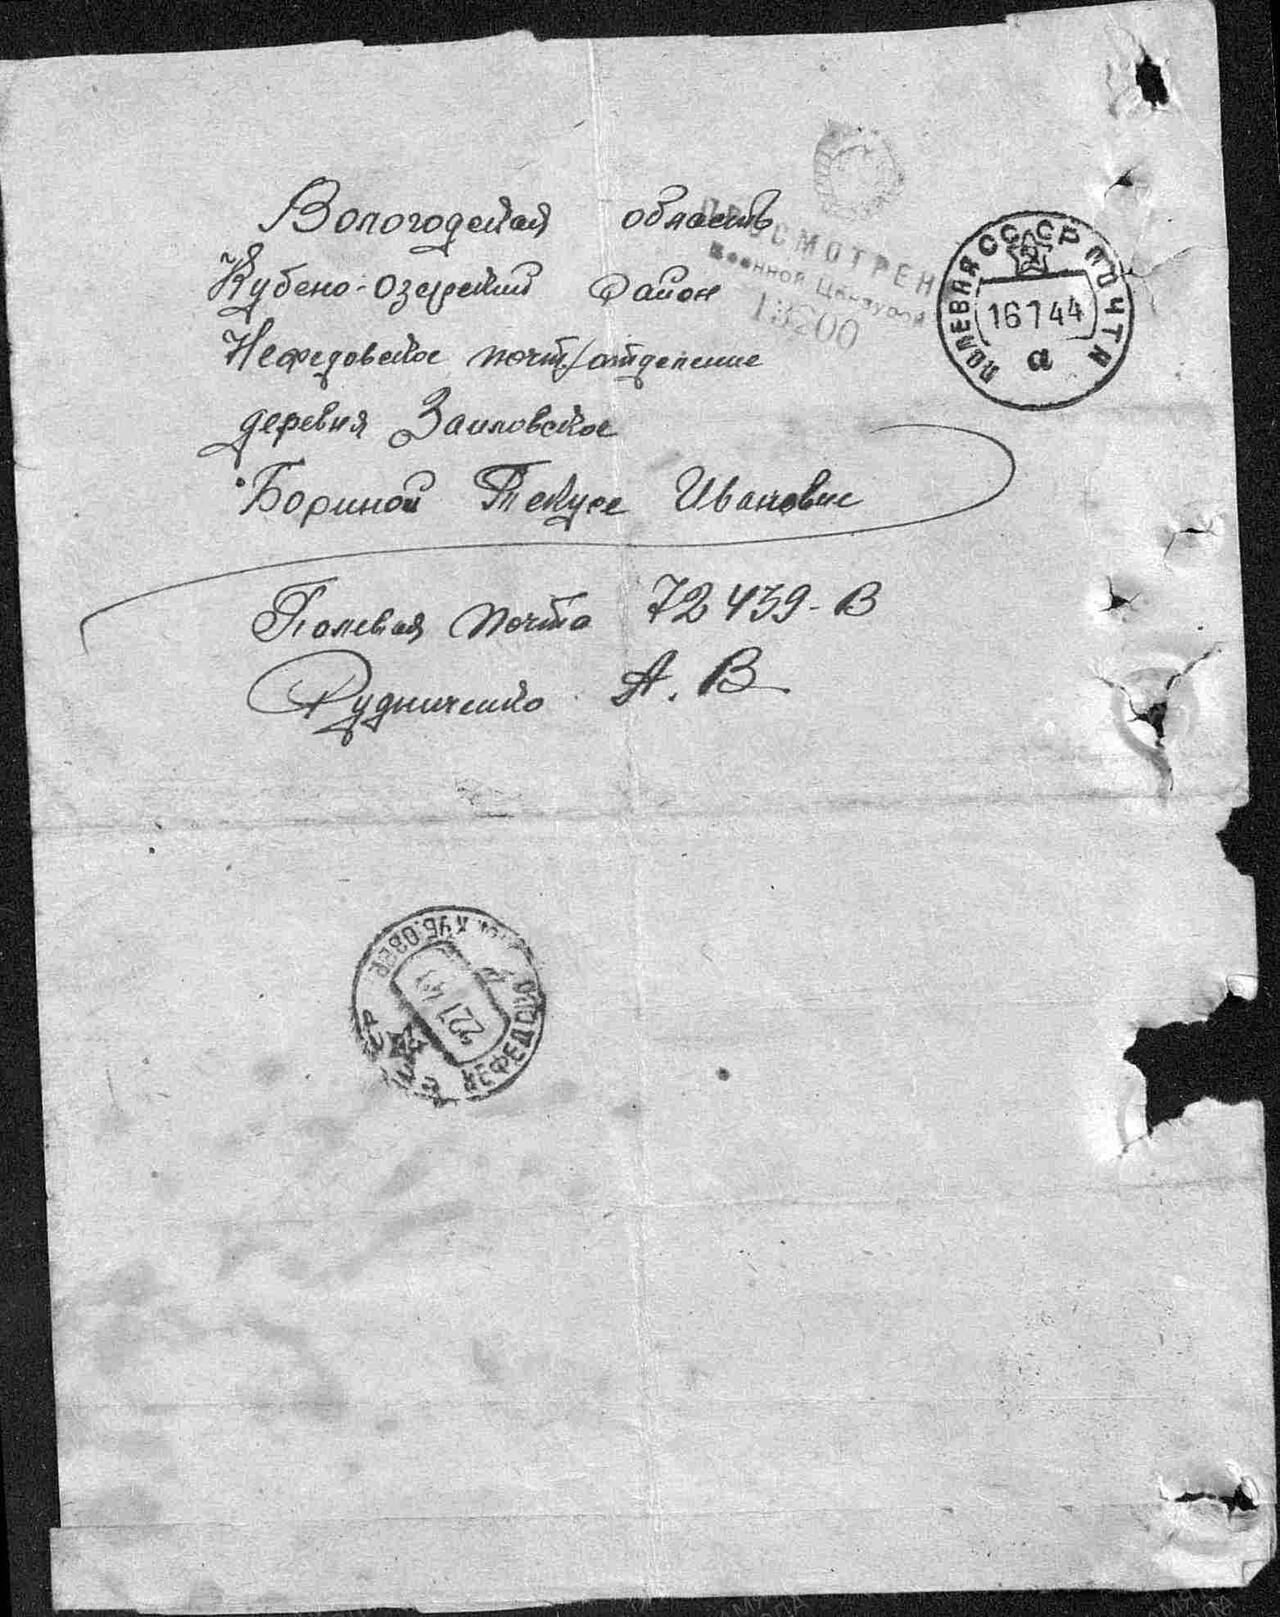 Вологодская область
Кубено-озерский район
Нефедовское почт/отделение
деревня Заиловское
Бориной Текусе Ивановне
Полевая почта 72439-В
Рудниченко А. В
ПРОСМОТРЕНО
Военной Цензурой
13200
СССР
ПОЛЕВАЯ ПОЧТА
16 1 44
а
НЕФЕД
КУБ. ОЗЕР
22 1